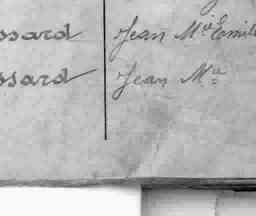 ossard Jean Mie Emile
ssard Jean Mie